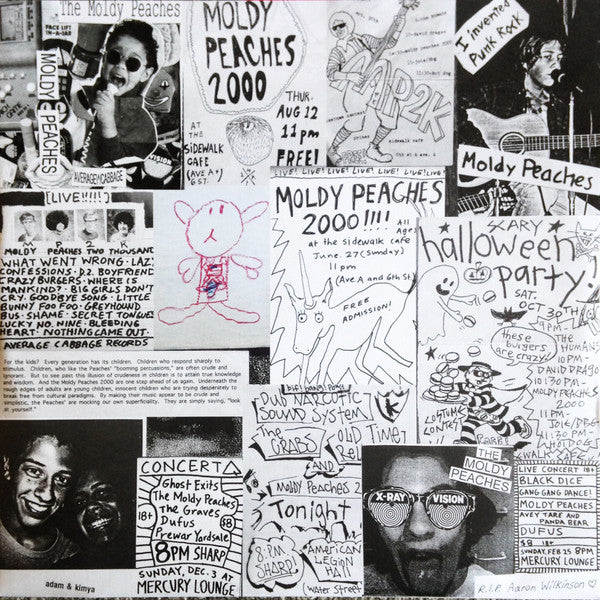 The Moldy Peaches
FACE LIFT
IN-A-JAR
MOLDY PEACHES
AVERAGE CABBAGE
VISION
MOLDY
PEACHES
2000
THUR.
AUG 12
11pm
FREE!
AT
THE
SIDEWALK
CAFE
(AVE A +
6 ST.
AAP2K
sidewalk cafe
I invented
Punk Rock
Moldy Peaches
[LIVE!!!!]
MOLDY PEACHES TWO THOUSAND
WHAT WENT WRONG · LAZY
CONFESSIONS · D.2. BOYFRIEND
CRAZY BURGERS · WHERE IS
MANKIND? · BIG GIRLS DON'T
CRY · GOODBYE SONG · LITTLE
BUNNY FOO FOO · GREYHOUND
BUS · SHAME · SECRET TONGUES
LUCKY NO. NINE · BLEEDING
HEART · NOTHING CAME OUT ·
AVERAGE CABBAGE RECORDS
LIVE! LIVE! LIVE! LIVE! LIVE! LIVE!
MOLDY PEACHES
2000!!!!
All
Ages
at the sidewalk cafe
June 27 (Sunday)
11 pm
(Ave A and 6th St)
FREE
ADMISSION!
SCARY
halloween
party!
SAT.
OCT 30TH
9PM-
THE
HUMANS
10PM-
DAVID DRAGO
10:30PM-
MOLDY
PEACHES
2000
11PM
JOIE/DBG
11:30PM-
these
burgers
are crazy!
COSTUME
CONTEST
For the kids? Every generation has its children. Children who respond sharply to
stimulus. Children, who like the Peaches' "booming percussions," are often crude and
ignorant. But to see past this illusion of crudeness in children is to attain true knowledge
and wisdom. And the Moldy Peaches 2000 are one step ahead of us again. Underneath the
rough edges of adults are young children, innocent children who are trying desperately to
break free from cultural paradigms. By making their music appear to be crude and
simplistic, the Peaches' are mocking our own superficiality. They are simply saying, "look
at yourself."
adam & kimya
CONCERT
Ghost Exits
The Moldy Peaches
The Graves
Dufus
Prewar Yardsale
18+
$8
8PM SHARP
SUNDAY, DEC. 3 AT
MERCURY LOUNGE
DUB NARCOTIC
SOUND SYSTEM
The
CRABS
Old Time
AND
Moldy Peaches 2
Tonight
8 PM
SHARP!
American
Legion
Hall
(Water Street
THE
MOLDY
PEACHES
X-RAY
VISION
LIVE CONCERT
BLACK DICE
GANG GANG DANCE!
MOLDY PEACHES
AVEY TARE AND
PANDA BEAR
DUFUS
$8 18+
SUNDAY, FEB 25 8PM
MERCURY LOUNGE
R.I.P. Aaron Wilkinson